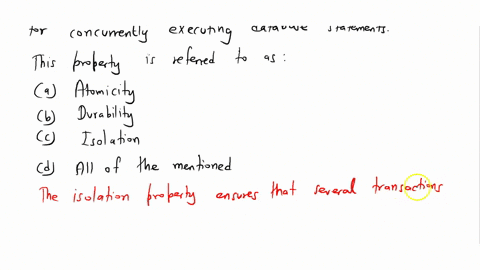 for concurrently executing database statements.
This property is referred to as :
(a) Atomicity
(b) Durability
(c) Isolation
(d) All of the mentioned
The isolation property ensures that several transactions